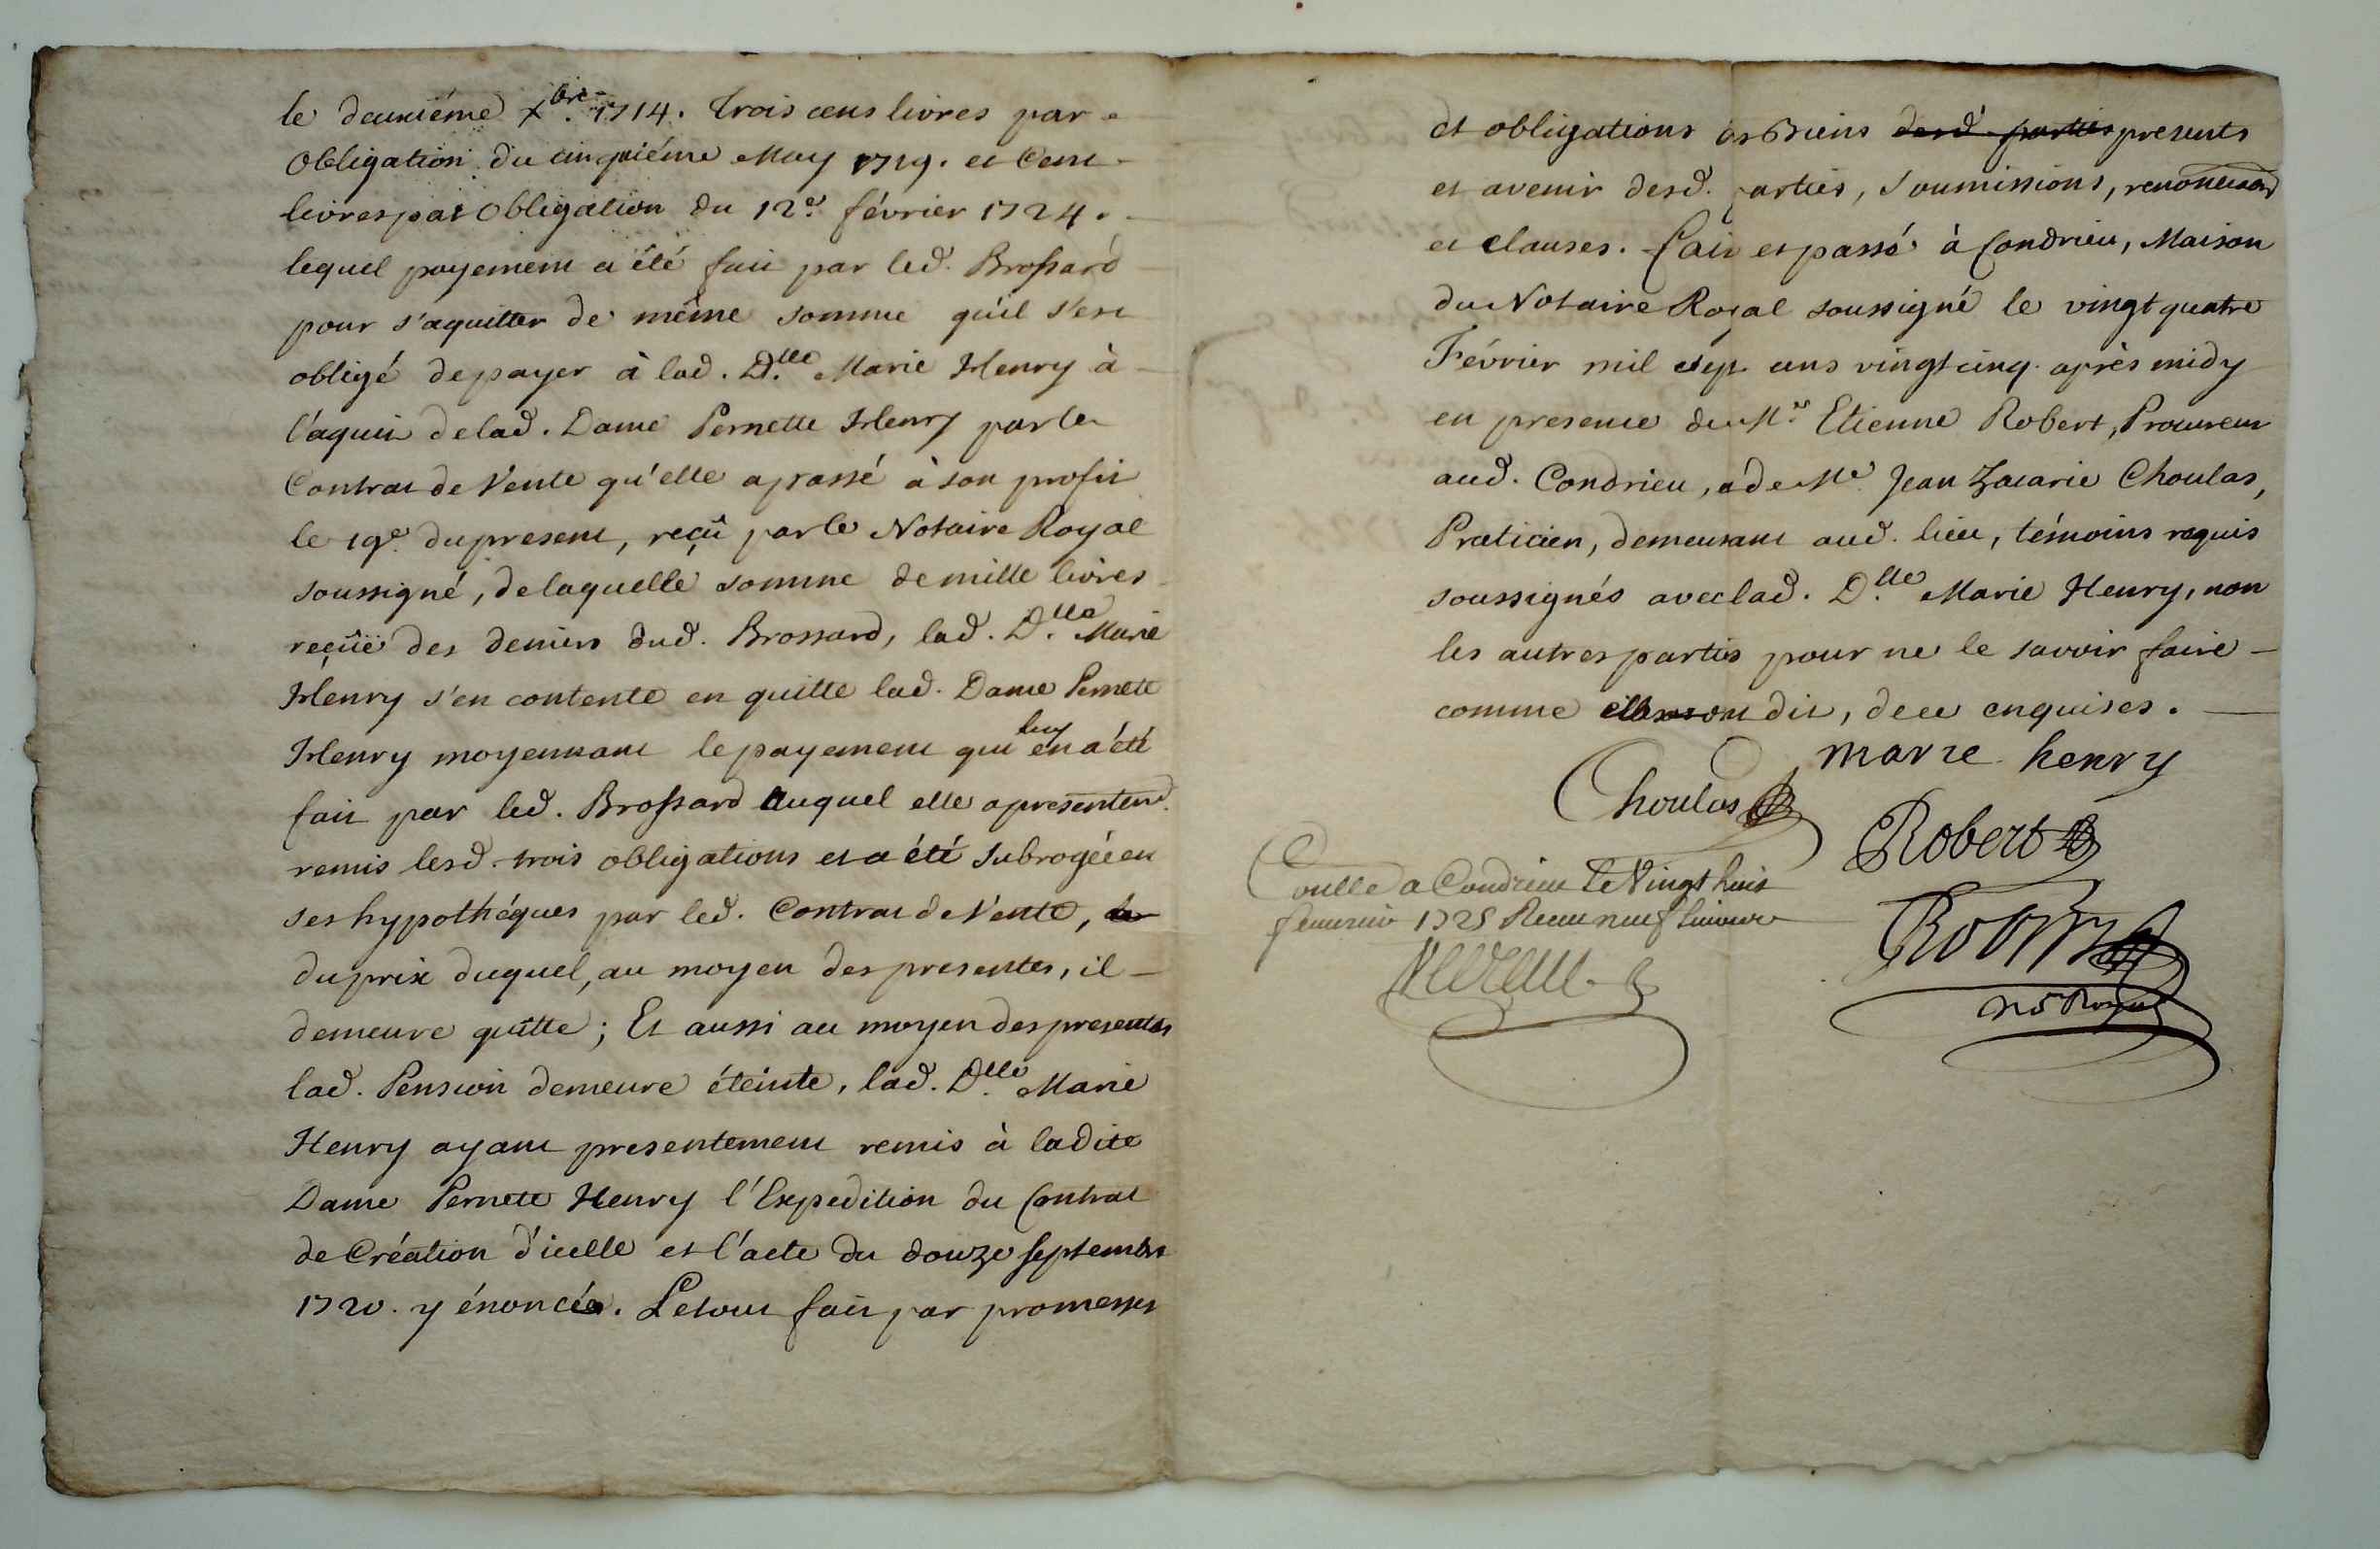 le deuxiéme Xbre. 1714. trois cens livres par
Obligation du cinquiéme May 1719. et Cent
livres par Obligation du 12e. février 1724.
lequel payement a été fait par led. Brossard
pour s'aquitter de même somme qu'il s'est
obligé de payer à lad. D.lle Marie Henry à
l'aquit de lad. Dame Pernette Henry par le
Contrat de Vente qu'elle a passé à son profit
le 19e. du present, reçû par le Notaire Royal
soussigné, de laquelle somme de mille livres
reçüe des deniers dud. Brossard, lad. D.lle Marie
Henry s'en contente en quitte lad. Dame Pernette
Henry moyennant le payement qui luy en a été
fait par led. Brossard auquel elle a presentemt.
remis lesd. trois obligations et a été subrogée en
ses hypothéques par led. Contrat de Vente,
du prix duquel, au moyen des presentes, il
demeure quitte; Et aussi au moyen des presentes
lad. Pension demeure éteinte, lad. D.lle Marie
Henry ayant presentement remis à ladite
Dame Pernette Henry l'Expedition du Contrat
de Création d'icelle et l'acte du douze septembre
1720. y énoncée. Le tout fait par promesses
et obligations des Biens desd. parties presents
et avenir desd. parties, soumissions, renonciaons
et clauses. Fait et passé à Condrieu, Maison
du Notaire Royal soussigné le vingt quatre
Février mil sept cens vingt cinq après midy
en presence de Me. Etienne Robert, Procureur
aud. Condrieu, et de Me Jean Zacarie Choulas,
Praticien, demeurant aud. lieu, témoins requis
soussignés avec lad. D.lle Marie Henry, non
les autres parties pour ne le savoir faire
comme elles ont dit, de ce enquises.
marie henry
Choulas
Robert
Conllé a Condrieu le Vingt huit
feuurier 1725 Receu neuf liures
no Royal